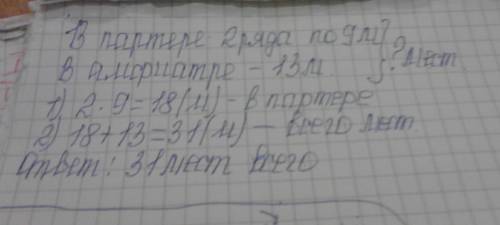 В партере 2 ряда по 9 м } ? мест
В амфиатре - 13 м
1) 2 · 9 = 18 (м) - в партере
2) 18 + 13 = 31 (м) - всего мест
Ответ: 31 мест всего